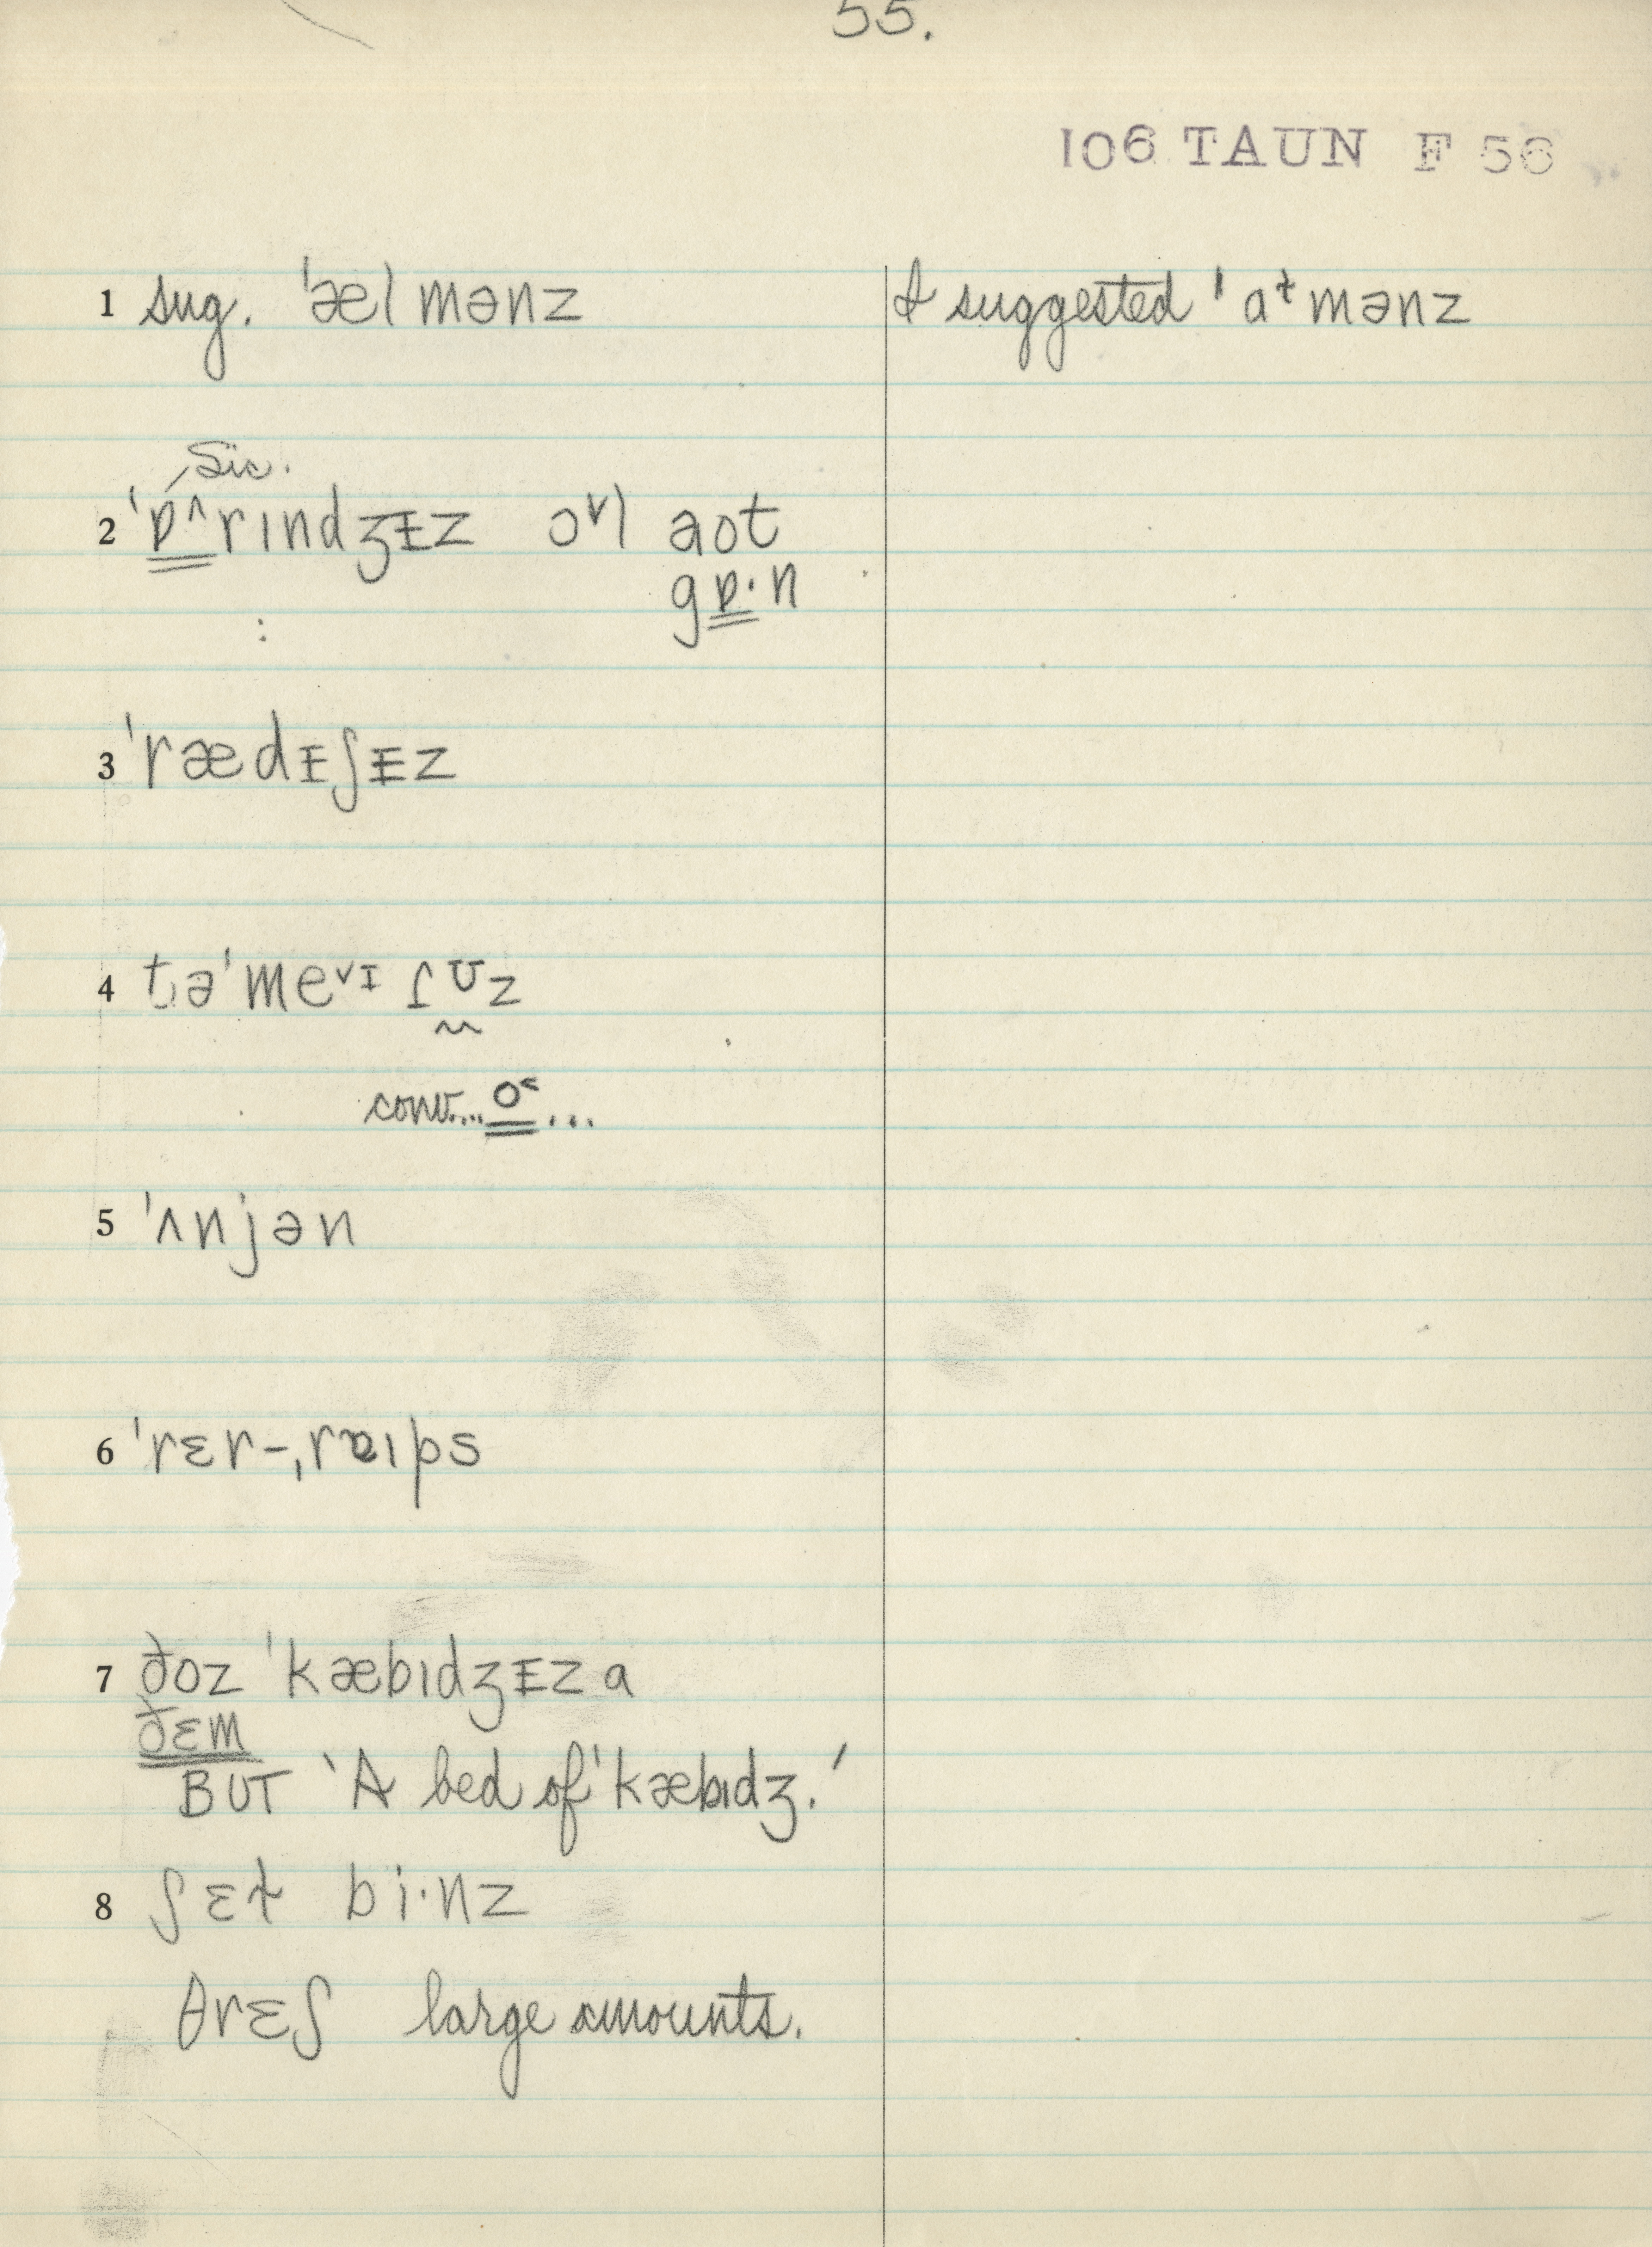 55.
106 TAUN F 56
1 sug. ˈælmənz
I suggested ˈaɫmənz
Sic.
2 ˈɒ^rɪndʒᵻz ɔ˅l aot
gɒ·n
:
3 ˈrædᵻʃᵻz
4 t̬əˈme˅ɪɾʊz
conv...o˂...
5 ˈʌnjən
6 ˈrɛr-ˌraɪps
7 ðoz ˈkæbɪdʒᵻz a
ðɛm
BUT 'A bed of ˈkæbɪdʒ.'
8 ʃɛɫ bi·nz
θrɛʃ large amounts.